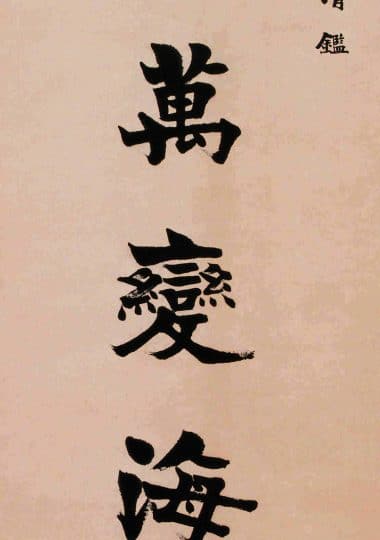 清鑑
萬變海